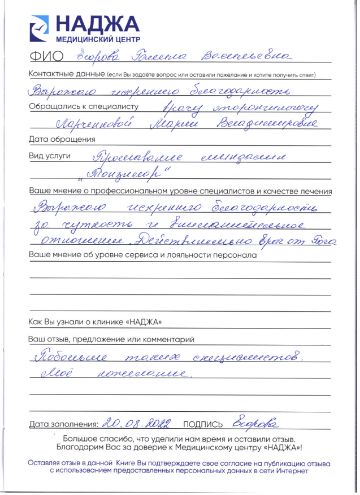 НАДЖА
МЕДИЦИНСКИЙ ЦЕНТР
ФИО Егорова Галина Васильевна
Контактные данные (если Вы задаёте вопрос или оставили пожелание и хотите получить ответ)
Выражаю искреннюю благодарность
Обращались к специалисту врачу оторинологу
Ларченковой Марии Владимировне
Дата обращения
Вид услуги Промывание миндалин
"Тонзиллор"
Ваше мнение о профессиональном уровне специалистов и качестве лечения
Выражаю искреннюю благодарность
за чуткость и внимательное
отношение. Действительно врач от Бога
Ваше мнение об уровне сервиса и лояльности персонала
Как Вы узнали о клинике «НАДЖА»
Ваш отзыв, предложение или комментарий
Побольше таких специалистов.
Моё пожелание.
Дата заполнения: 20.08.2022 ПОДПИСЬ Егорова
Большое спасибо, что уделили нам время и оставили отзыв.
Благодарим Вас за доверие к Медицинскому центру «НАДЖА»!
Оставляя отзыв в данной Книге Вы подтверждаете свое согласие на публикацию отзыва
с использованием предоставленных персональных данных в сети Интернет